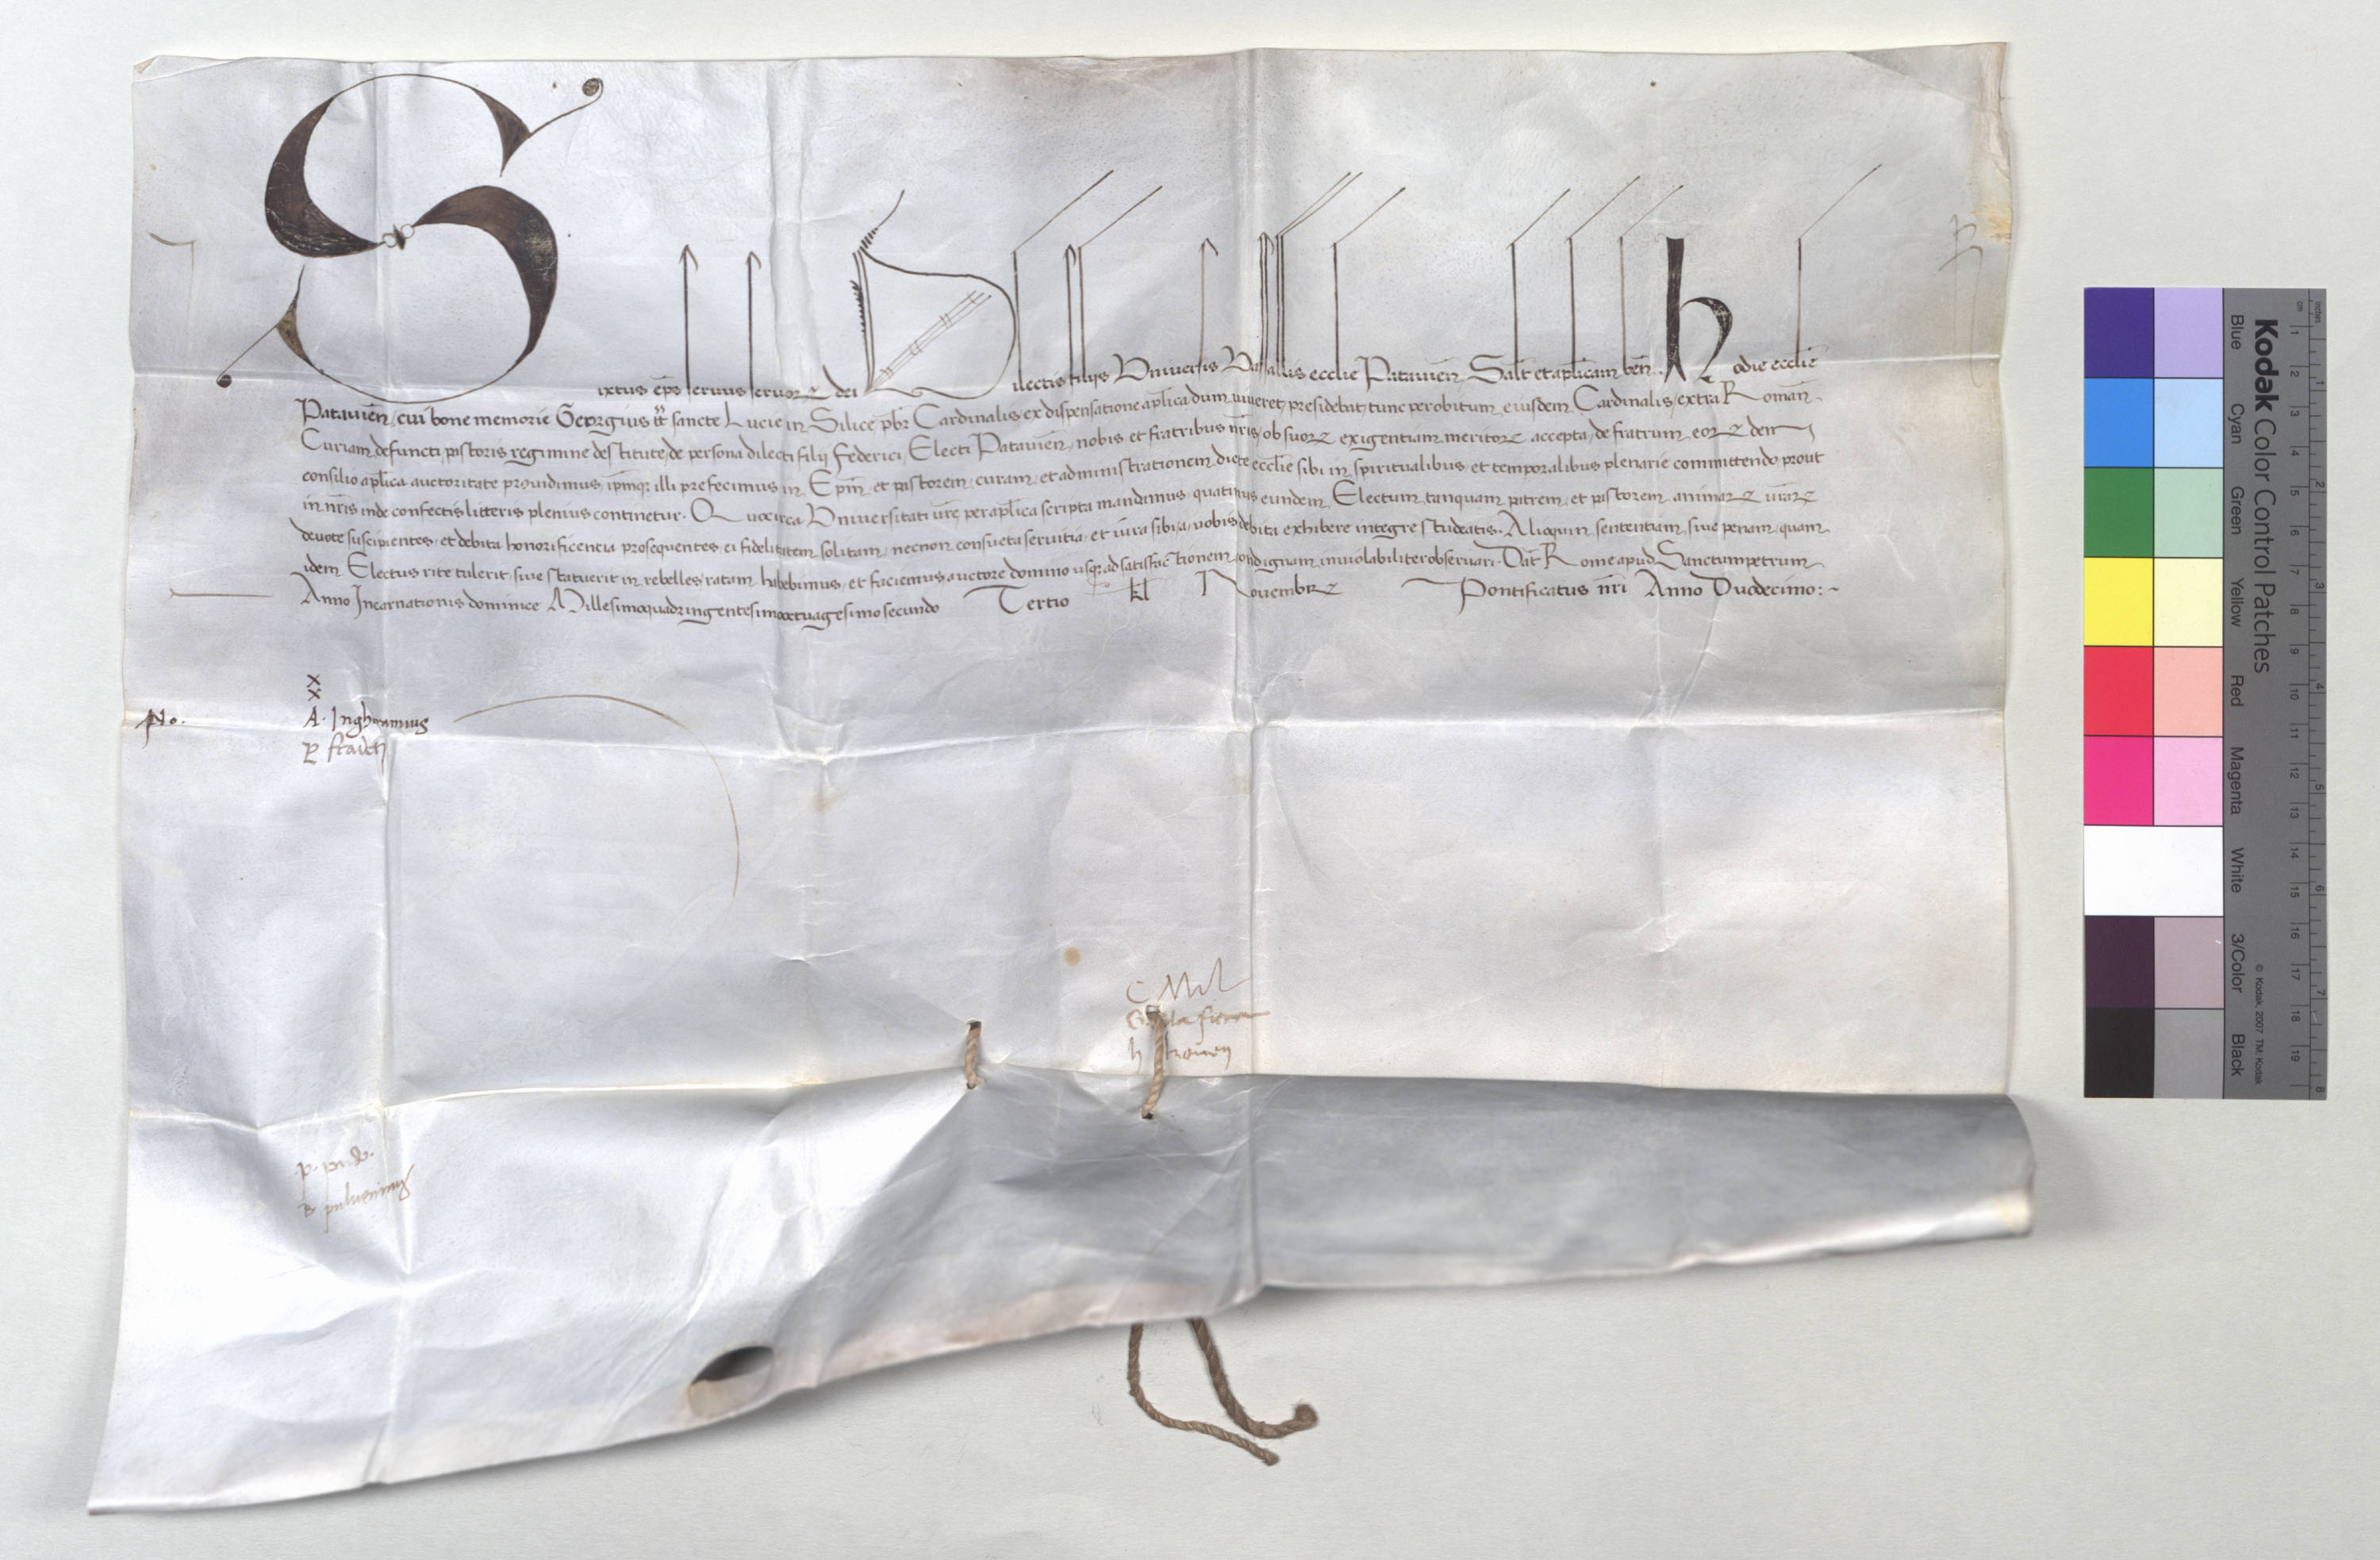 Sixtus ep̄s servus servoꝝ dei Dilectis filijs Universis Vassallis ecclie Patavien̄ Salt̄ et aplicam ben̄. Hodie ecclie
Patavien̄, cui bone memorie Georgius tt̄ sancte Lucie in Silice pb̄r Cardinalis ex dispensatione aplica dum viveret, presidebat, tunc per obitum eiusdem Cardinalis, extra Roman̄
Curiam defuncti, pastoris regimine destitute, de persona dilecti filij Federici, Electi Patavien̄, nobis et fratribus nr̄is, ob suoꝝ exigentiam meritoꝝ accepta, de fratrum eoꝝdem
consilio aplica auctoritate providimus, ip̄mqꝫ illi prefecimus in Ep̄m et pastorem, curam, et administrationem dicte ecclie sibi in spiritualibus, et temporalibus plenarie committendo prout
in nr̄is inde confectis litteris plenius continetur. Quocirca Universitati vr̄e, per aplica scripta mandamus, quatinus eundem Electum, tanquam patrem, et pastorem animaꝝ vr̄aꝝ
devote suscipientes, et debita honorificentia prosequentes, ei fidelitatem solitam, necnon consueta servitia, et iura sibi, a vobis debita exhibere integre studeatis. Alioquin sententiam, sive penam, quam
idem Electus rite tulerit, sive statuerit in rebelles, ratam habebimus, et faciemus auctore domino usqꝫ ad satisfactionem condignam inviolabiliter observari. Dat̄ Rome apud Sanctumpetrum
Anno Incarnationis dominice Millesimoquadringentesimooctuagesimosecundo Tertio kl̄ Novembꝝ Pontificatus nr̄i Anno Duodecimo:~
x
x
No.
A. Inghiramius
P
C
h
p.
B pulverinus
Kodak Color Control Patches
Blue Cyan Green Yellow Red Magenta White 3/Color Black
© Kodak, 2007 TM: Kodak
inches 1 2 3 4 5 6 7 8
cm 1 2 3 4 5 6 7 8 9 10 11 12 13 14 15 16 17 18 19